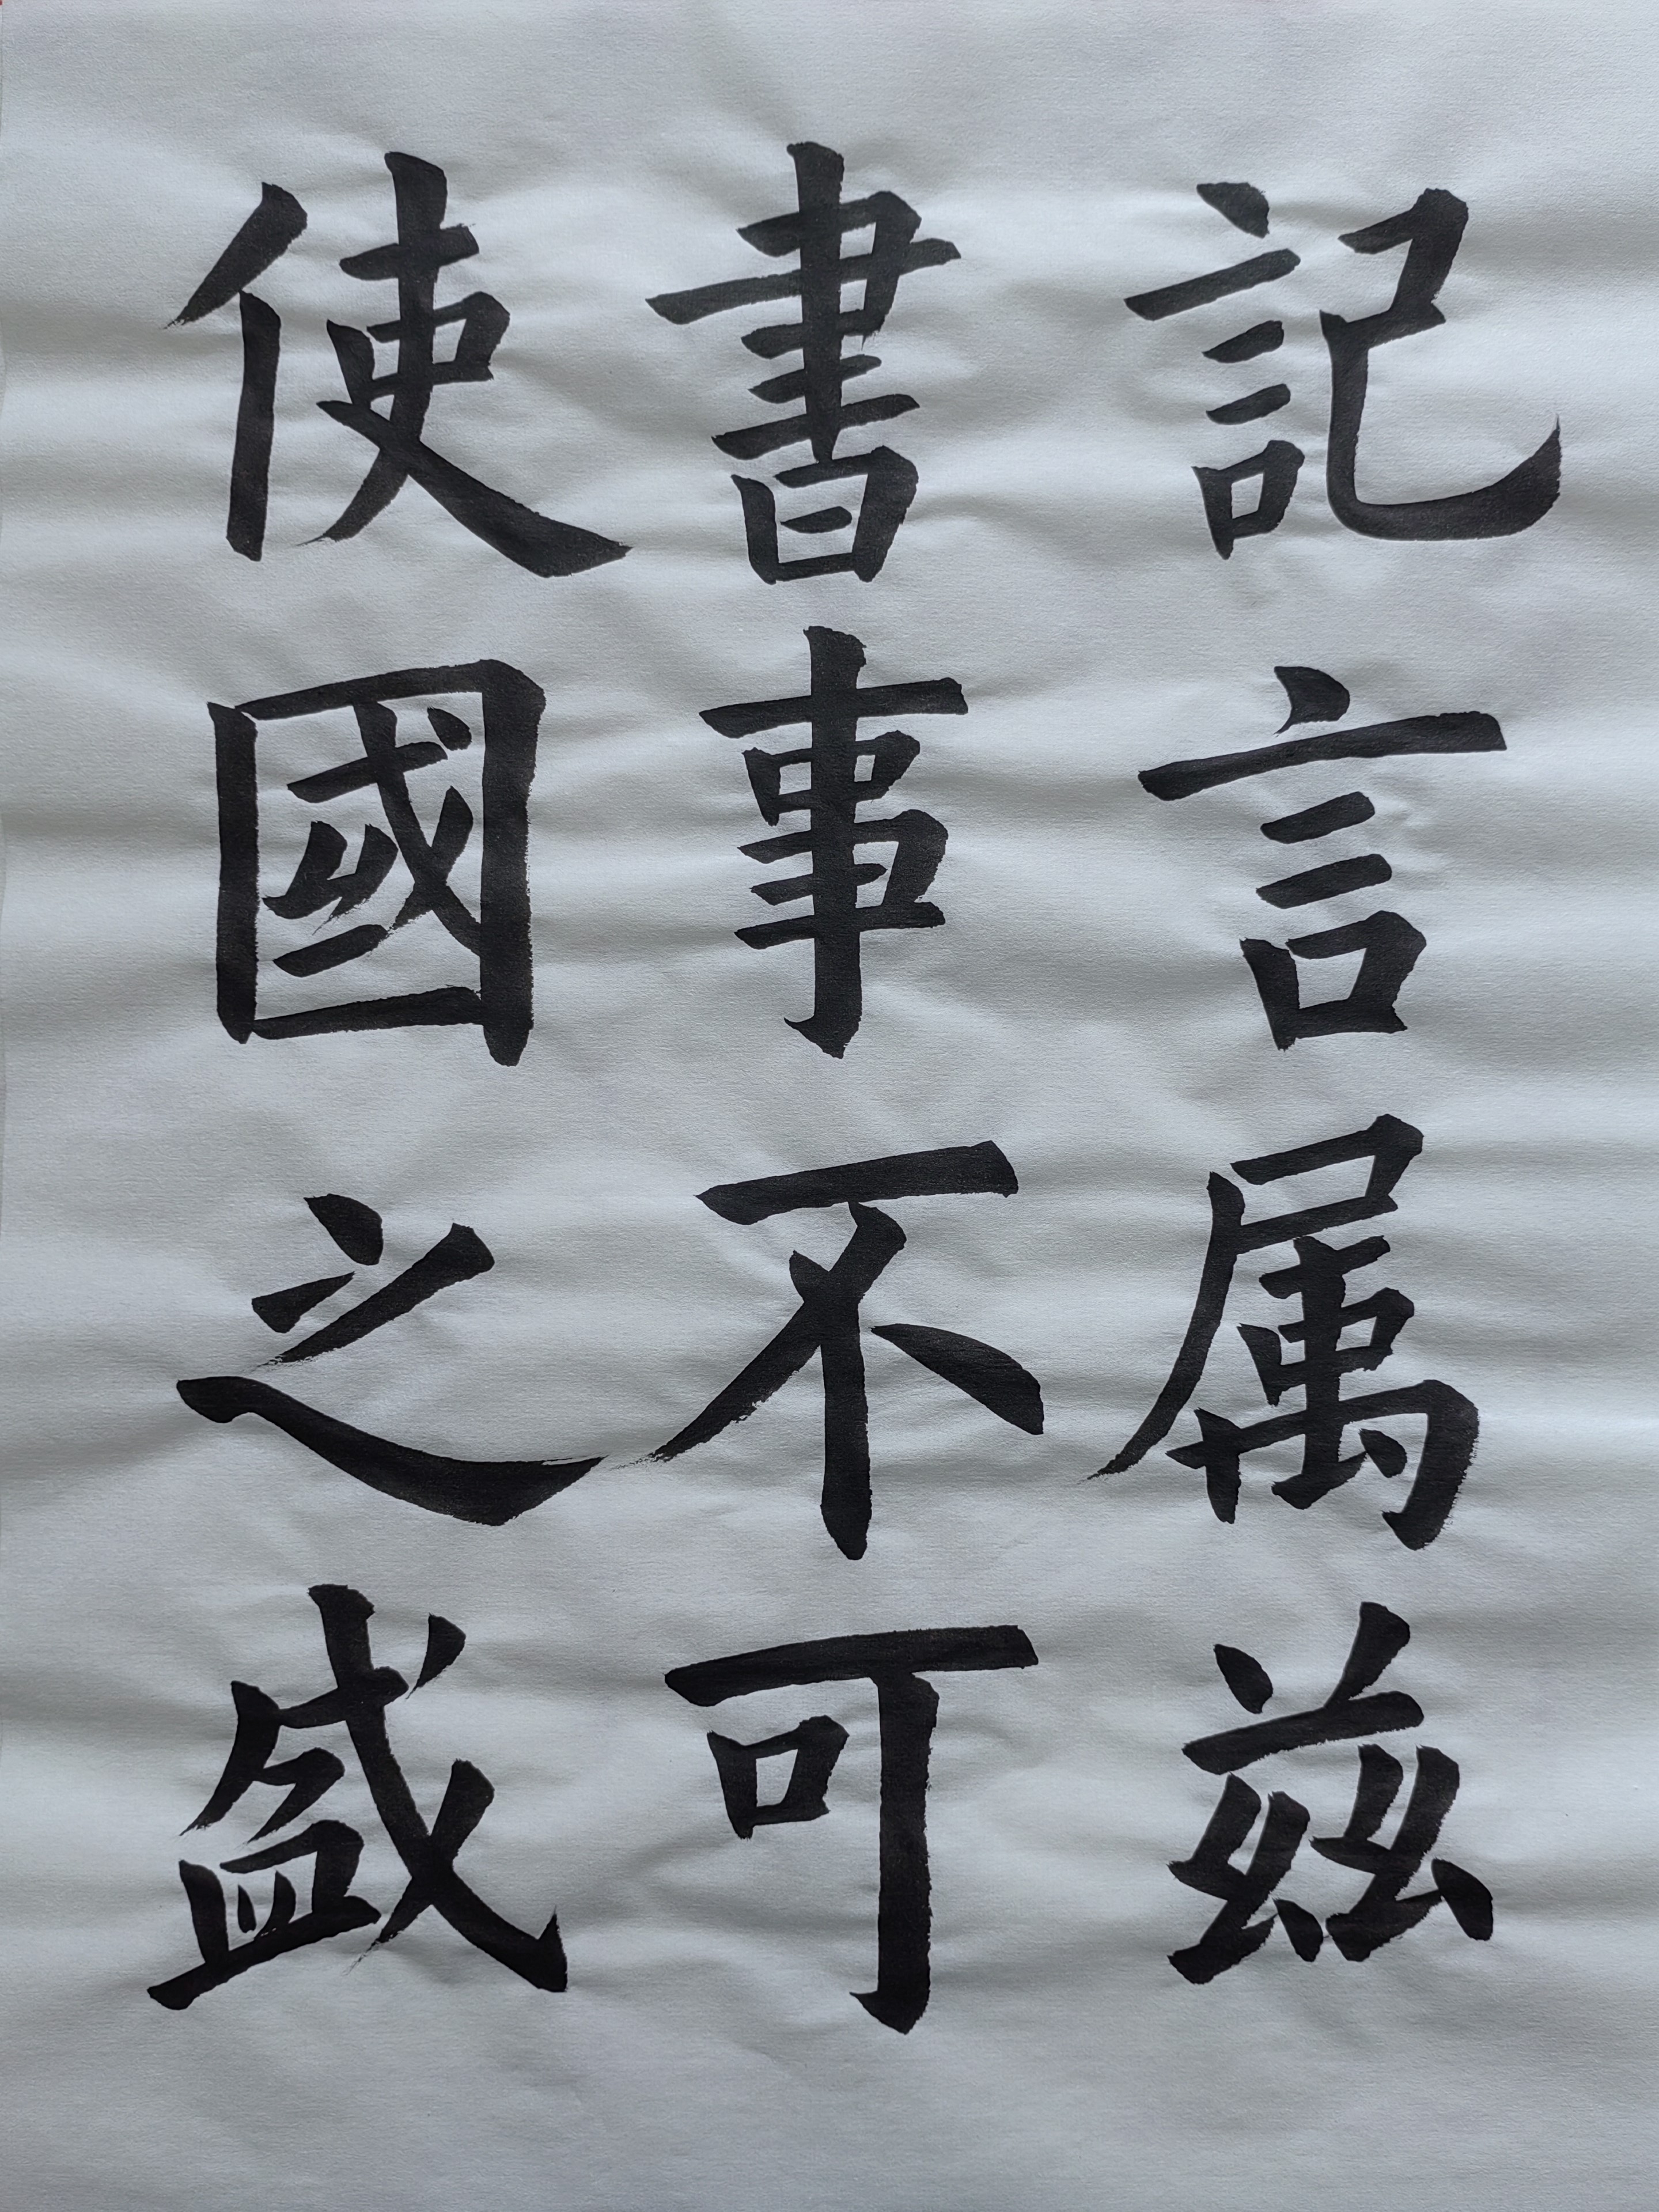 記言属茲
書事不可
使國之盛